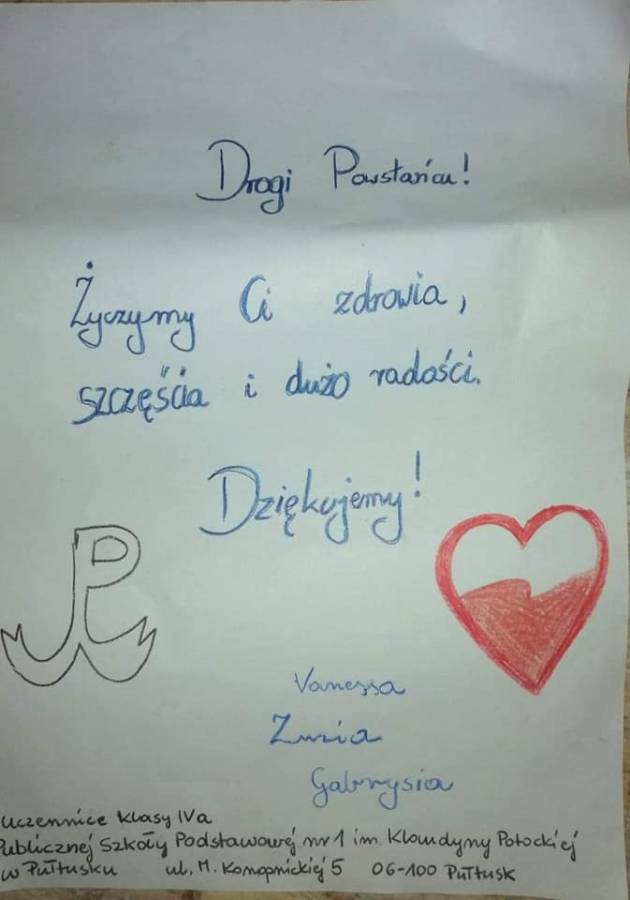 Drogi Powstańcu!
Życzymy Ci zdrowia,
szczęścia i dużo radości.
Dziękujemy!
Vanessa
Zuzia
Gabrysia
uczennice klasy IVa
Publicznej Szkoły Podstawowej nr 1 im. Klaudyny Potockiej
w Pułtusku ul. M. Konopnickiej 5 06-100 Pułtusk